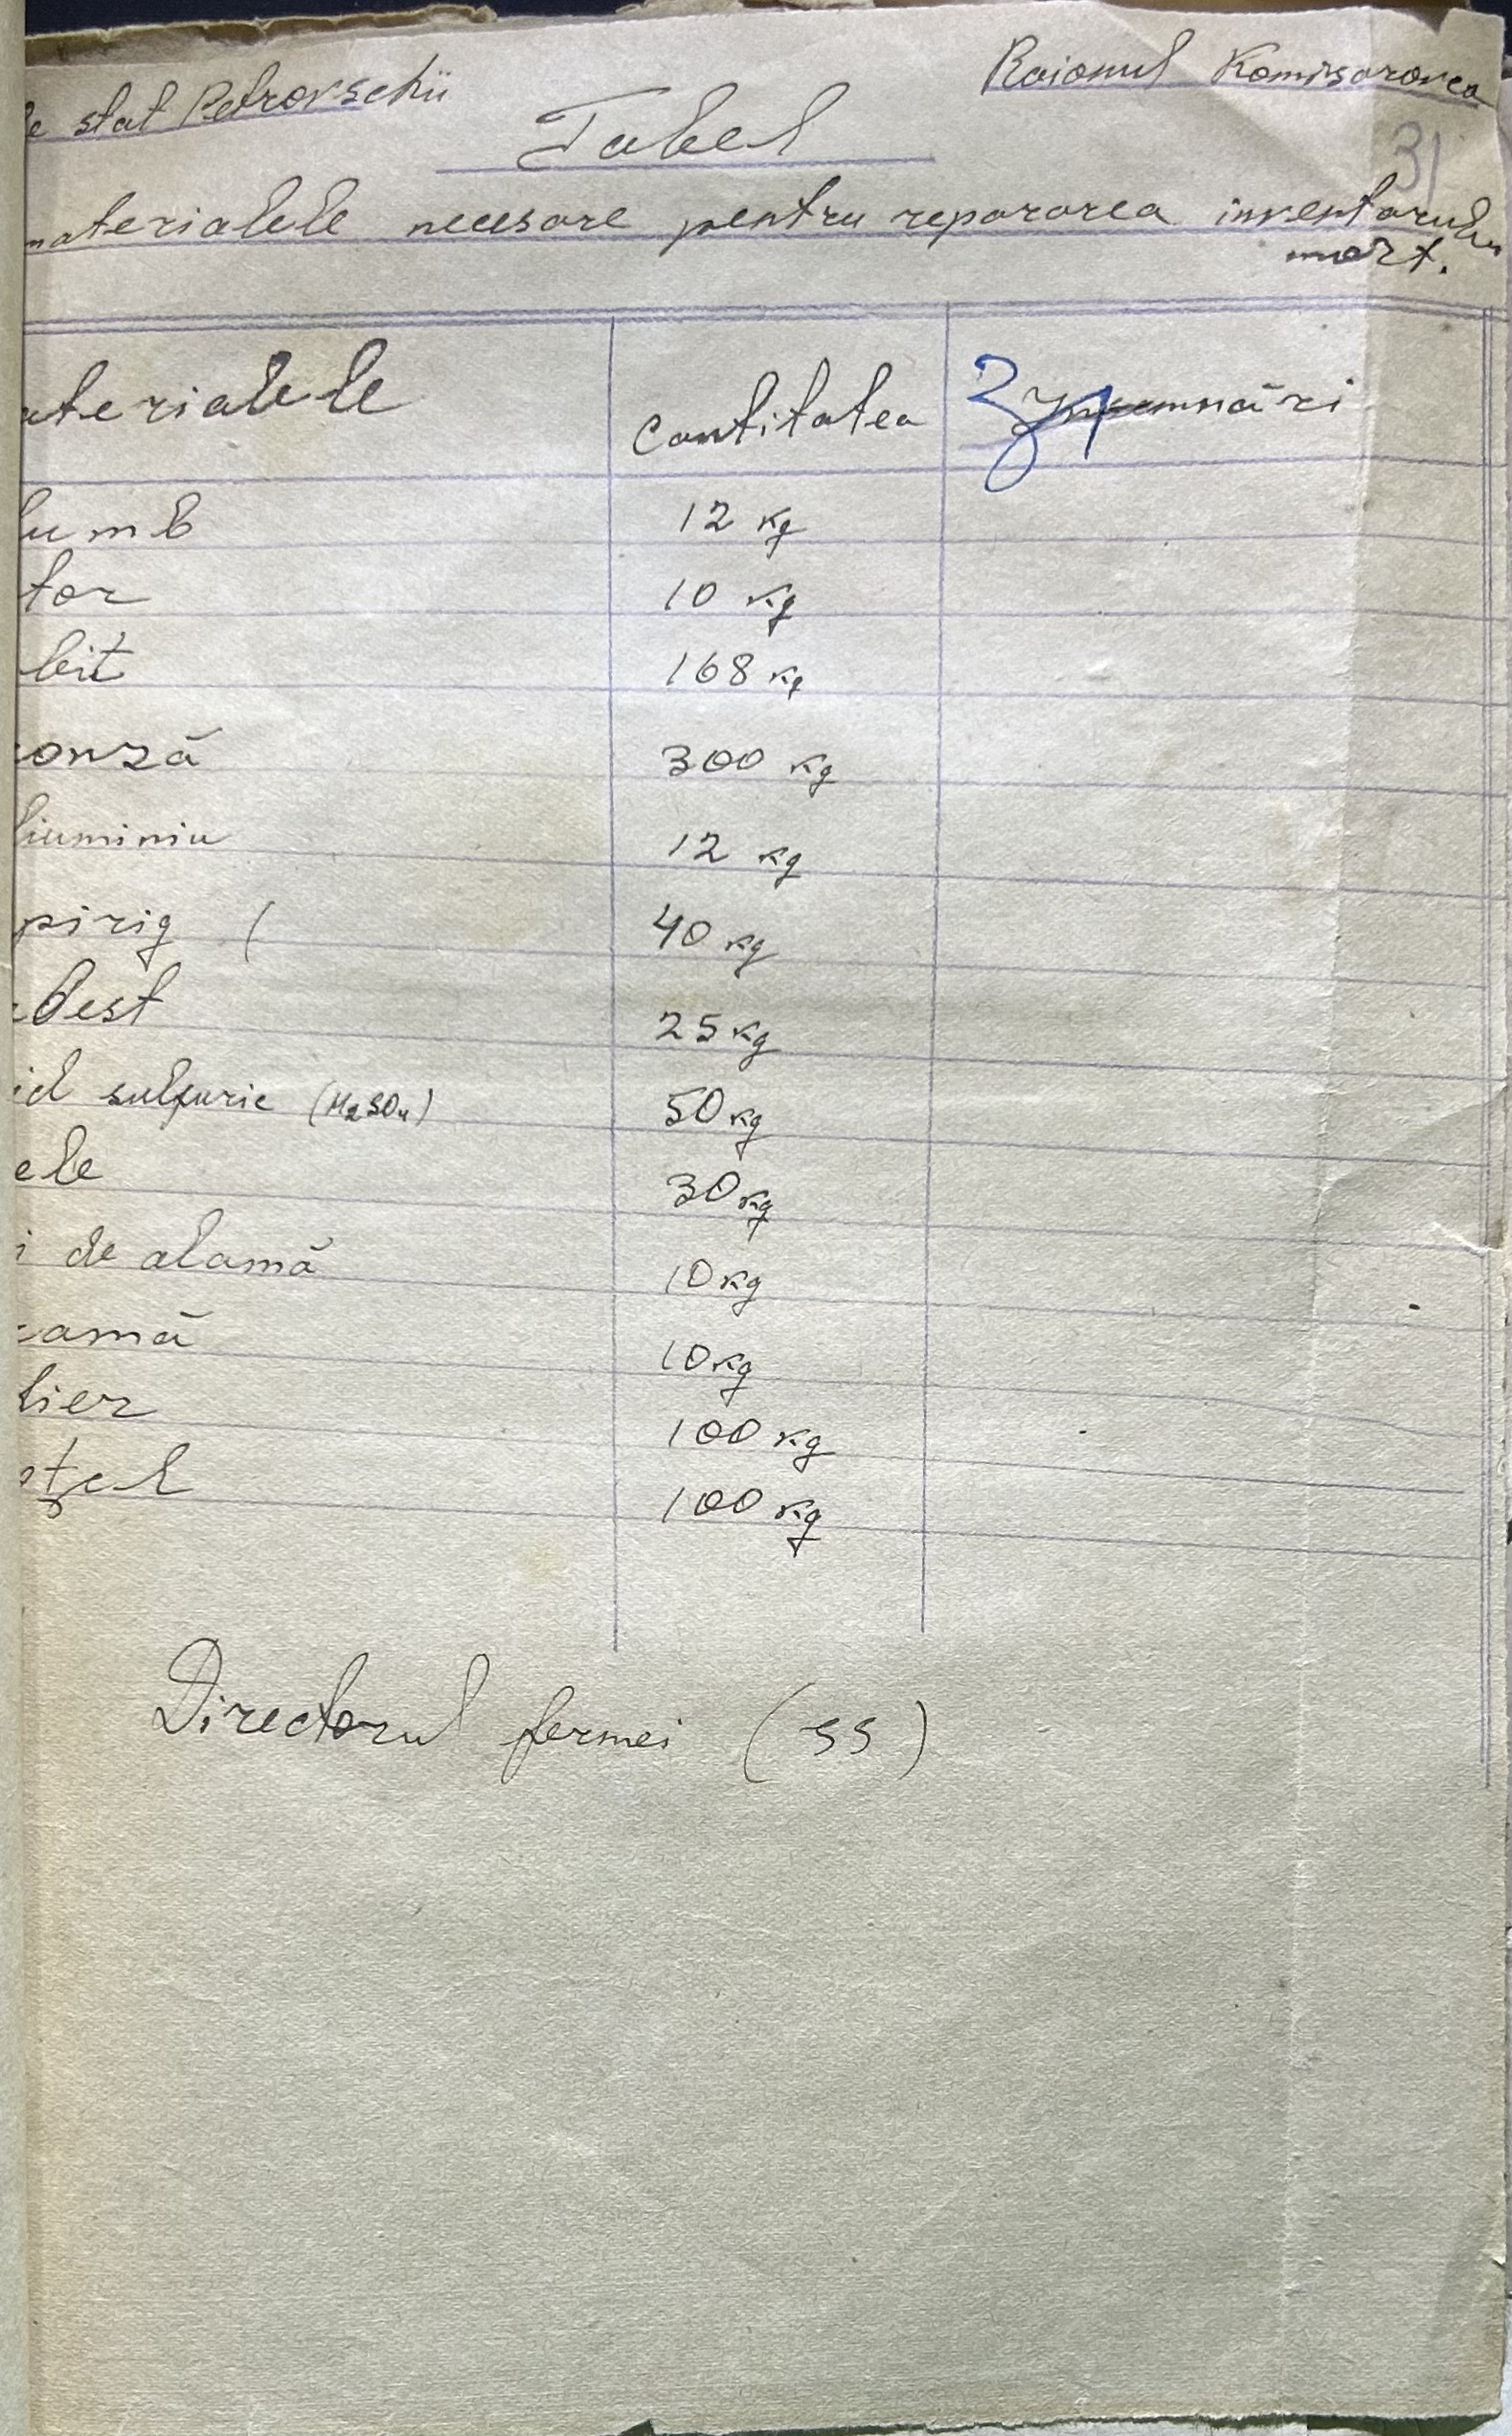 e stat Petrovschii Raionul Komisarovca
31
Tabel
materialele necesare pentru repararea inventarului
mort.
aterialele cantitatea Însemnări
31
lumb 12 kg
tor 10 kg
bit 168 kg
ronză 300 kg
liuminiu 12 kg
pirig ( 40 kg
best 25 kg
id sulfuric (H2SO4) 50 kg
ele 30 kg
i de alamă 10 kg
lamă 10 kg
lier 100 kg
oţel 100 kg
Directorul fermei (ss)